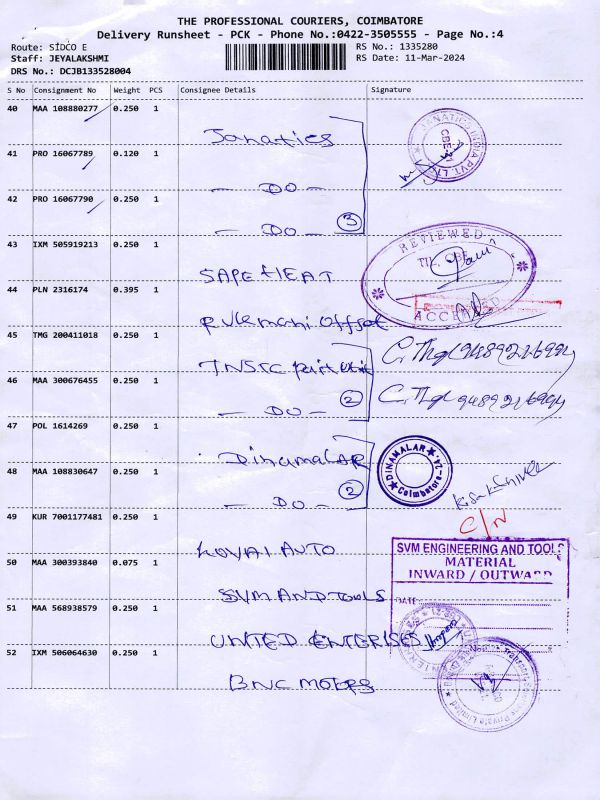 THE PROFESSIONAL COURIERS, COIMBATORE
Delivery Runsheet - PCK - Phone No.:0422-3505555 - Page No.:4
Route: SIDCO E
RS No.: 1335280
Staff: JEYALAKSHMI
RS Date: 11-Mar-2024
DRS No.: DCJB133528004
S No Consignment No Weight PCS Consignee Details Signature
40 MAA 108880277 0.250 1
Janatics
JANATICS INDIA PVT. LTD
CBE
41 PRO 16067789 0.120 1
- DO -
42 PRO 16067790 0.250 1
- DO -
3
43 IXM 505919213 0.250 1
REVIEWED
SAPE HEAT
44 PLN 2316174 0.395 1
ACCEPTED
Rukmani Offset
45 TMG 200411018 0.250 1
TNSTC
46 MAA 300676455 0.250 1
- DO -
2
47 POL 1614269 0.250 1
Dinamalar
DINAMALAR
Coimbatore-24.
48 MAA 108830647 0.250 1
- DO -
2
49 KUR 7001177481 0.250 1
C/N
KOVAI AUTO
SVM ENGINEERING AND TOOLS
MATERIAL
INWARD / OUTWARD
50 MAA 300393840 0.075 1
SVM AND TOOLS
DATE
51 MAA 568938579 0.250 1
UNITED ENTERISES
52 IXM 506064630 0.250 1
BNC MOTORS